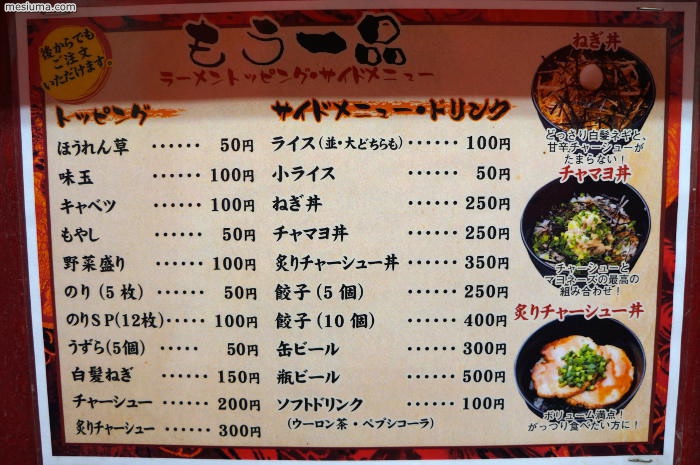 mesiuma.com
後からでも
ご注文
いただけます。
もう一品
ラーメントッピング・サイドメニュー
トッピング
ほうれん草 ‥‥‥ 50円
味玉 ‥‥‥ 100円
キャベツ ‥‥‥ 100円
もやし ‥‥‥ 50円
野菜盛り ‥‥‥ 100円
のり(5枚) ‥‥‥ 50円
のりSP(12枚)‥‥‥ 100円
うずら(5個) ‥‥‥ 50円
白髪ねぎ ‥‥‥ 150円
チャーシュー ‥‥‥ 200円
炙りチャーシュー ‥‥‥ 300円
サイドメニュー・ドリンク
ライス(並・大どちらも) ‥‥‥ 100円
小ライス ‥‥‥ 50円
ねぎ丼 ‥‥‥ 250円
チャマヨ丼 ‥‥‥ 250円
炙りチャーシュー丼 ‥‥‥ 350円
餃子(5個) ‥‥‥ 250円
餃子(10個) ‥‥‥ 400円
缶ビール ‥‥‥ 300円
瓶ビール ‥‥‥ 500円
ソフトドリンク ‥‥‥ 100円
(ウーロン茶・ペプシコーラ)
ねぎ丼
どっさり白髪ネギと、
甘辛チャーシューが
たまらない!
チャマヨ丼
チャーシューと
マヨネーズの最高の
組み合わせ!
炙りチャーシュー丼
ボリューム満点!
がっつり食べたい方に!